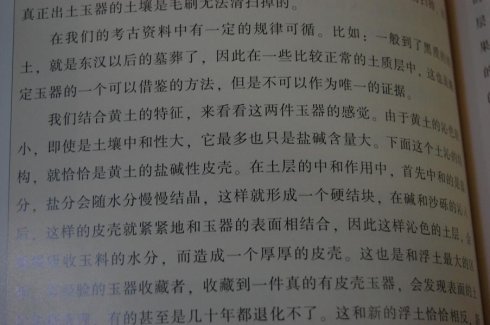 真正出土玉器的土壤是毛刷无法清扫掉的。
在我们的考古资料中有一定的规律可循。比如：一般到了黑
土，就是东汉以后的墓葬了，因此在一些比较正常的土质层中，这也
定玉器的一个可以借鉴的方法，但是不可以作为唯一的证据。
我们结合黄土的特征，来看看这两件玉器的感觉。由于黄土的沁色
小，即使是土壤中和性大，它最多也只是盐碱含量大。下面这个土沁的
构，就恰恰是黄土的盐碱性皮壳。在土层的中和作用中，首先中和的是
分，盐分会随水分慢慢结晶，这样就形成一个硬结块，在碱和沙砾的沁
后，这样的皮壳就紧紧地和玉器的表面相结合，因此这样沁色的土层，
收玉料的水分，而造成一个厚厚的皮壳。这也是和浮土最大的
经验的玉器收藏者，收藏到一件真的有皮壳玉器，会发现表面的土
有的甚至是几十年都退化不了。这和新的浮土恰恰相反，